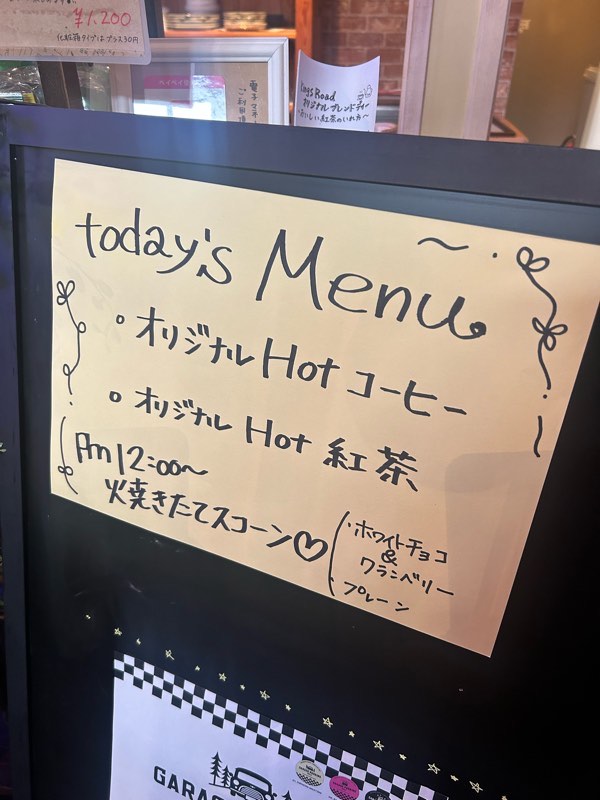 ¥1,200
化粧箱タイプはプラス30円
ペイペイ
電子マネー
Kings Road
オリジナルブレンドティー
~おいしい紅茶のいれ方~
today's Menu
・オリジナル Hot コーヒー
・オリジナル Hot 紅茶
Pm 12:00~
火焼きたてスコーン♡
・ホワイトチョコ
&
クランベリー
・プレーン
GARA